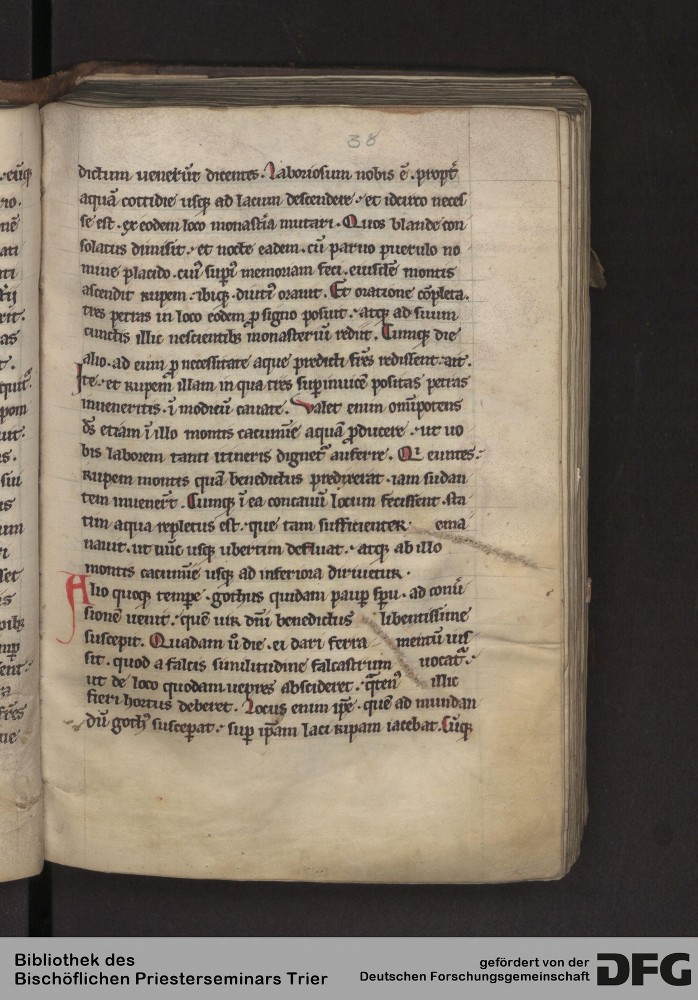 38
dictum uenerūt dicentes. Laboriosum nobis ē. propt̄
aquā cottidie usq; ad lacum descendere. et idcirco neces
se est. ex eodem loco monastia mutari. Quos blande con
solatus dimisit. et nocte eadem. cū paruo puerulo no
mine placido. cui' sup̄i' memoriam feci. eiusdē montis
ascendit rupem. ibiq; diuti' orauit. Et oratione cōpleta.
tres petras in loco eodem ꝓ signo posuit. atq; ad suum
cunctis illic nescientib; monasteriū rediit. Cumq; die
alio. ad eum ꝓ necessitate aque predicti fr̄es redissent. ait.
Ite. et rupem illam in qua tres sup inuicē positas petras
inueneritis. ī modicū cauate. Valet enim om̄potens
d̄s etiam ī illo montis cacumīe aquā ꝓducere. ut uo
bis laborem tanti itineris dignet' auferre. Qi euntes.
rupem montis quā benedictus predixerat. iam sudan
tem inuener̄t. Cumq; ī ea concauū locum fecissent. sta
tim aqua repletus est. que tam sufficienter ema
nauit. ut nūc usq; ubertim defluat. atq; ab illo
montis cacumīe usq; ad inferiora diriuetur.
Alio quoq; temp̄e. gothus quidam paup sp̄u. ad conū
sione uenit. quē uir dn̄i benedictus libentissime
suscepit. Quadam ū die. ei dari ferra mentū ius
sit. quod a falcis similitudine falcastrum uocat̄.
ut de loco quodam uepres abscideret. q̄ten' illic
fieri hortus deberet. Locus enim ip̄e. quē ad mundan
dū goth' susceperat. sup ip̄am laci ripam iacebat. Cūq;
Bibliothek des
Bischöflichen Priesterseminars Trier
gefördert von der
Deutschen Forschungsgemeinschaft
DFG